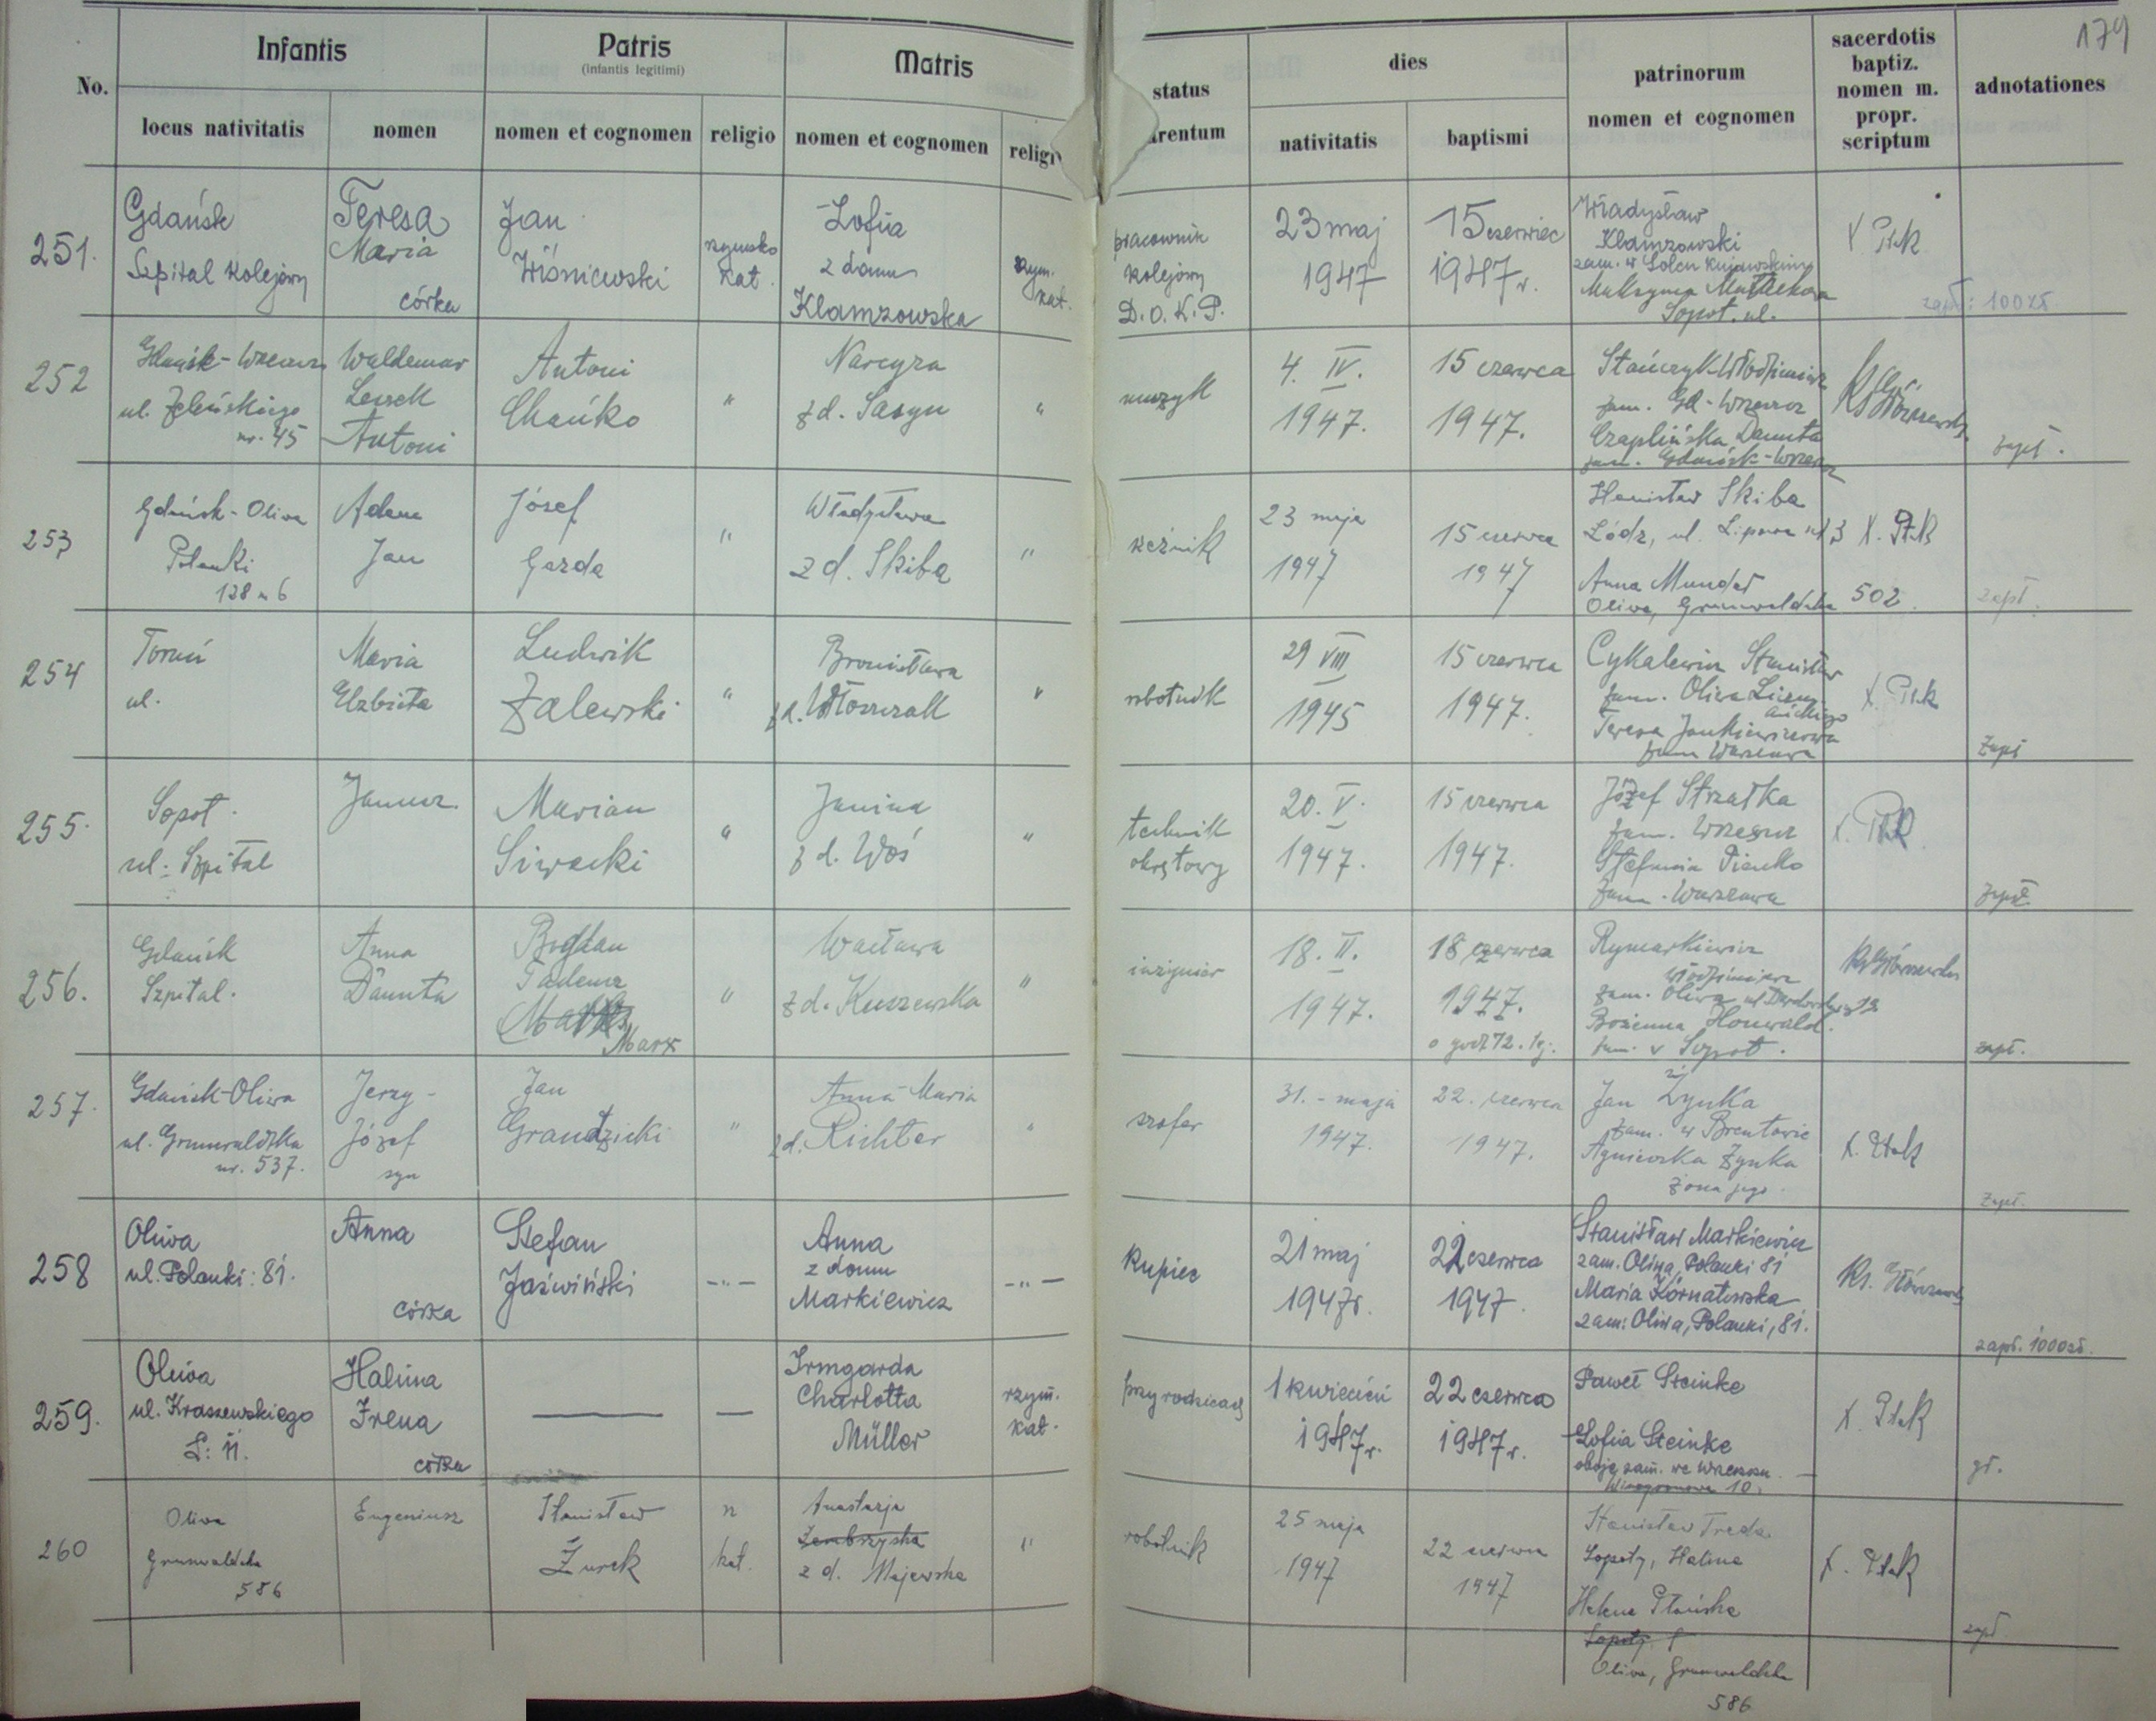 179
No.
Infantis
locus nativitatis
nomen
Patris
(infantis legitimi)
nomen et cognomen
religio
Matris
nomen et cognomen
religi
status
arentum
dies
nativitatis
baptismi
patrinorum
nomen et cognomen
sacerdotis
baptiz.
nomen m.
propr.
scriptum
adnotationes
251.
Gdańsk
Szpital Kolejowy
Teresa
Maria
córka
Jan
Wiśniewski
rzymsko
kat.
Zofia
z domu
Klamzowska
rzym.
kat.
pracownik
kolejowy
D.O.K.P.
23 maj
1947
15 czerwiec
1947r.
Władysław
Klamzowski
zam. w Solcu Kujawskim
Sopot. ul.
X Ptak
zapł: 100 zł
252
Gdańsk-Wrzeszcz
ul. Zeleńskiego
nr. 45
Waldemar
Leszek
Antoni
Antoni
Chańko
"
Narcyza
z d. Sasyn
"
muzyk
4. IV.
1947.
15 czerwca
1947.
Stańczyk Włodzimierz
zam. Gd-Wrzeszcz
Czaplińska Danuta
zam. Gdańsk-Wrzeszcz
zapł.
253
Gdańsk-Oliwa
Polanki
128 m 6
Adam
Jan
Józef
Gazda
"
Władysława
z d. Skiba
"
23 maja
1947
15 czerwca
1947
Stanisław Skiba
Łódz, ul. Lipowa
Anna
Oliwa, Grunwaldzka 502
X. Ptak
zapł.
254
Toruń
ul.
Maria
Elzbieta
Ludwik
Zalewski
"
Bronisława
z d. Włoszczak
"
robotnik
29 VIII
1945
15 czerwca
1947.
Stanisław
zam. Oliwa
Teresa Jankiewiczowa
zam Warszawa
X. Ptak
zapł
255.
Sopot.
ul: Szpital
Janusz.
Marian
Siwecki
"
Janina
z d. Woś
"
technik
okrętowy
20. V.
1947.
15 czerwca
1947.
Józef Strzałka
zam. Wrzeszcz
Stefania Pieńko
zam. Warszawa
X. Ptak
zapł.
256.
Gdańsk
Szpital.
Anna
Danuta
Bogdan
Tadeusz
Marx
"
Wacława
z d. Kuszewska
"
inżynier
18. II.
1947.
18 czerwca
1947.
Rymarkiewicz
Włodzimierz
zam. Oliwa
Bożenna Houwald.
zam. w Sopot.
zapł.
257.
Gdańsk-Oliwa
ul. Grunwaldzka
nr. 537.
Jerzy-
Józef
syn
Jan
Grandzicki
"
Anna-Maria
z d. Richter
"
szofer
31. - maja
1947.
22. czerwca
1947.
Jan Zynka
zam. w Brentowie
Agnieszka Zynka
żona jego.
X. Ptak
zapł.
258
Oliwa
ul. Polanki: 81.
Anna
córka
Stefan
Jaświński
-"-
Anna
z domu
Markiewicz
-"-
kupiec
21 maj
1947r.
22 czerwca
1947.
Stanisław Markiewicz
zam. Oliwa, Polanki 81
Maria Kornatowska
zam: Oliwa, Polanki, 81.
zapł. 1000 zł.
259.
Oliwa
ul. Kraszewskiego
L: 11.
Halina
Irena
córka
Irmgarda
Charlotta
Müller
rzym.
kat.
przy rodzicach
1 kwiecień
1947r.
22 czerwca
1947r.
Paweł Steinke
Zofia Steinke
oboje zam. we Wrzeszcz.
Winogronowa 10.
X. Ptak
260
Oliwa
Grunwaldzka
586
Eugeniusz
Stanisław
Żurek
kat.
Anastazja
z d. Majewska
"
robotnik
25 maja
1947
22 czerwca
1947
Stanisław Treda
Sopoty, Halina
Helena
Sopoty.
Oliwa, Grunwaldzka
586
X. Ptak
zapł.